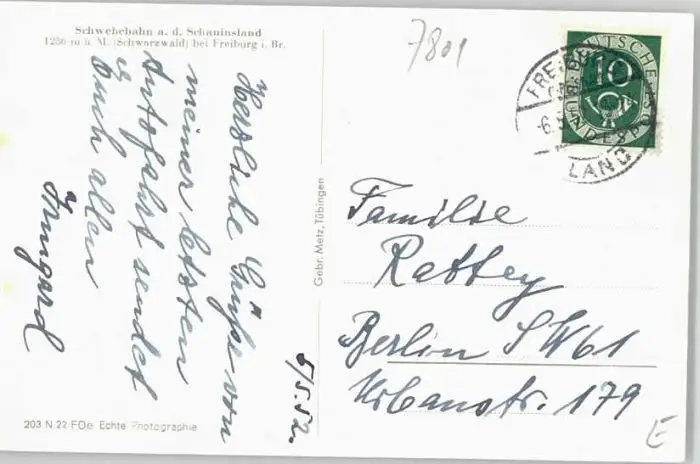 Schwebebahn a. d. Schauinsland
1286 m ü. M. (Schwarzwald) bei Freiburg i. Br.
7801
Herzliche Grüße von
meiner letzten
Autofahrt sendet
Euch allen
Irmgard
5/5.52.
Gebr. Metz, Tübingen
203 N 22 FOe Echte Photographie
DEUTSCHE
10
BUNDESPOST
FREIBURG
LAND
Familie
Rattey
Berlin SW 61
Urbanstr. 179
E